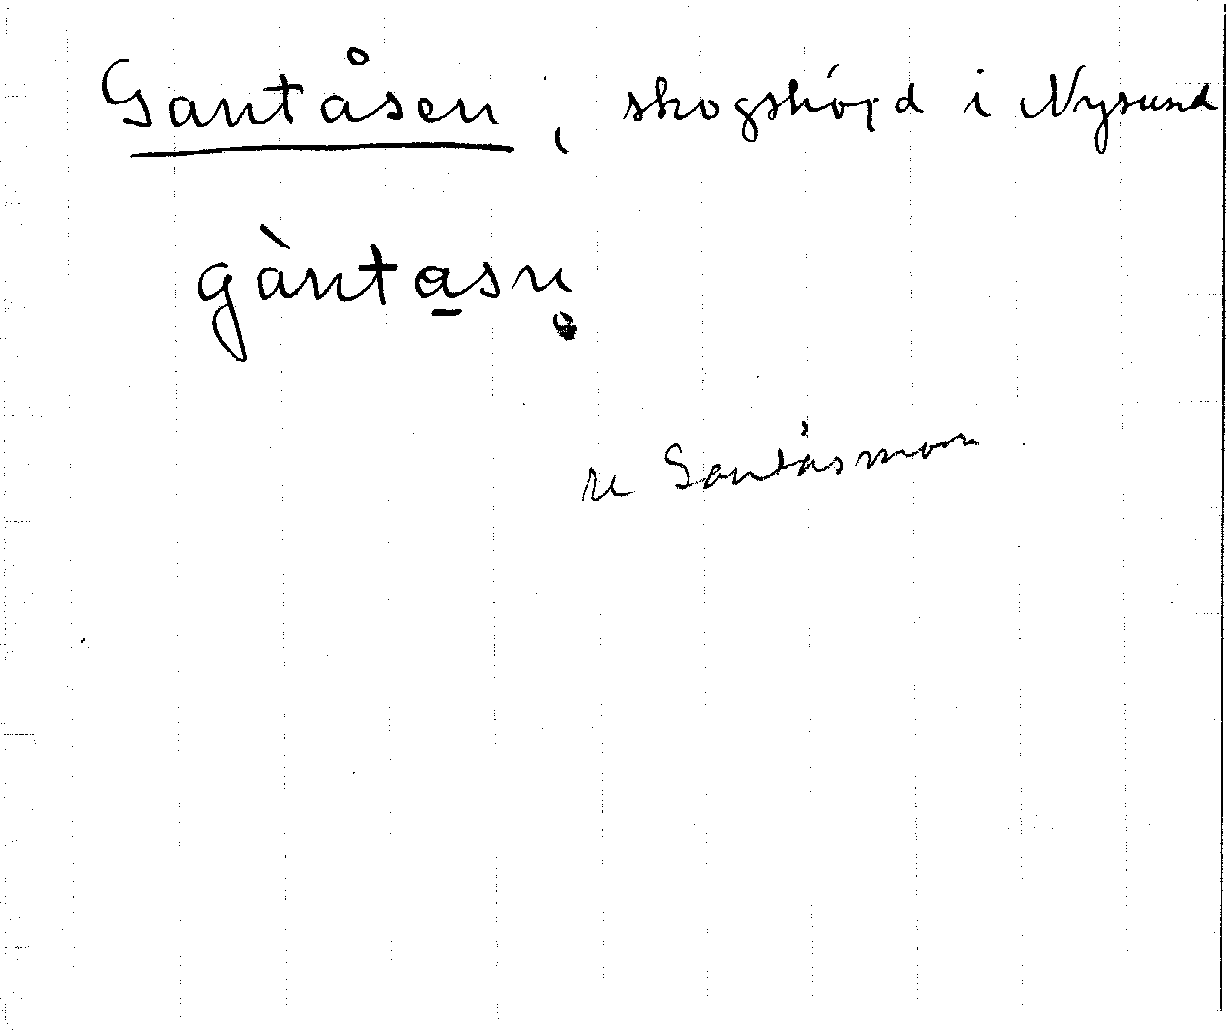 Gantåsen, skogshöjd i Nysund
gànta̲sn̥
se Gantåsmon